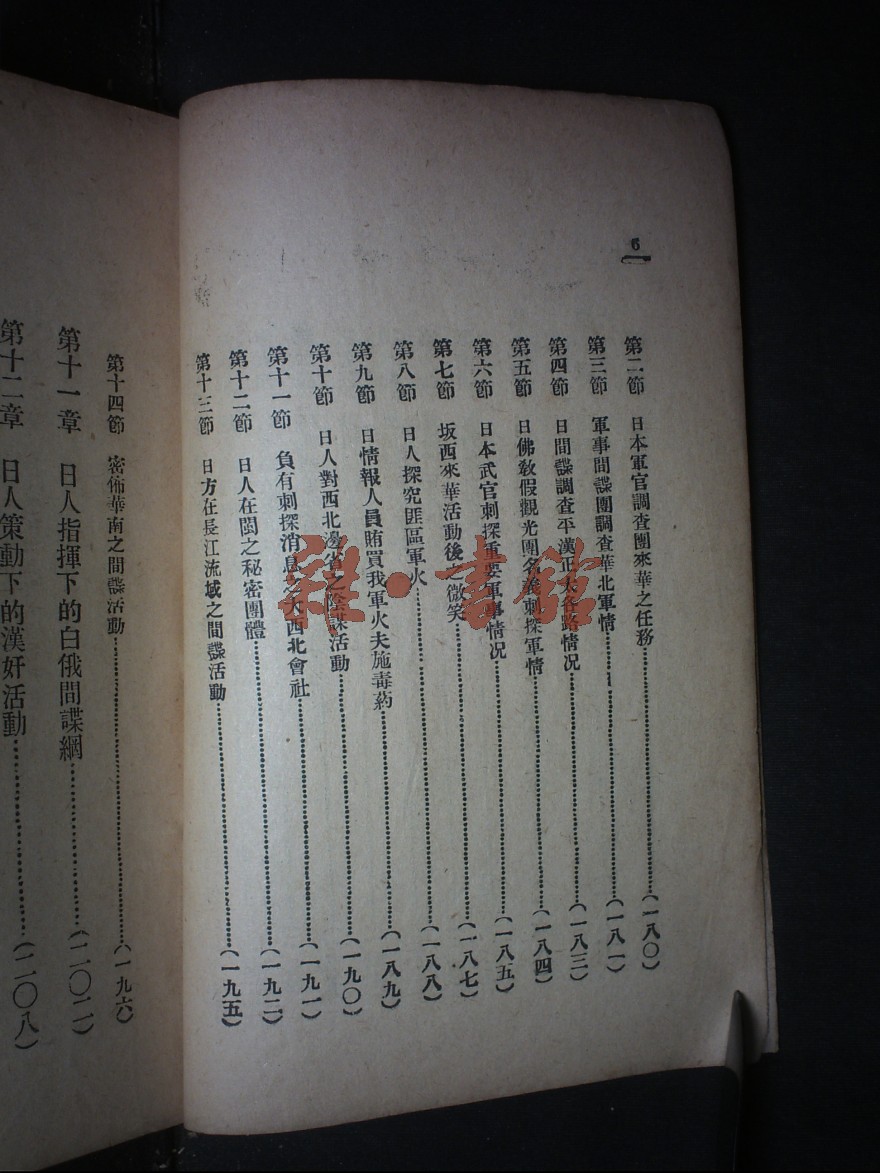 6
第二節　日本軍官調查團來華之任務……（一八〇）
第三節　軍事間諜團調查華北軍情……（一八一）
第四節　日間諜調查平漢正太各路情况……（一八三）
第五節　日佛敎假觀光團名義刺探軍情……（一八四）
第六節　日本武官刺探重要軍事情况……（一八五）
第七節　坂西來華活動後之微笑……（一八七）
第八節　日人探究匪區軍火……（一八八）
第九節　日情報人員賄買我軍火夫施毒葯……（一八九）
第十節　日人對西北邊省之陰謀活動……（一九〇）
第十一節　負有刺探消息之大西北會社……（一九一）
第十二節　日人在閩之秘密團體……（一九二）
第十三節　日方在長江流域之間諜活動……（一九五）
第十四節　密佈華南之間諜活動……（一九六）
第十一章　日人指揮下的白俄間諜網……（二〇二）
第十二章　日人策動下的漢奸活動……（二〇八）
雜·書館